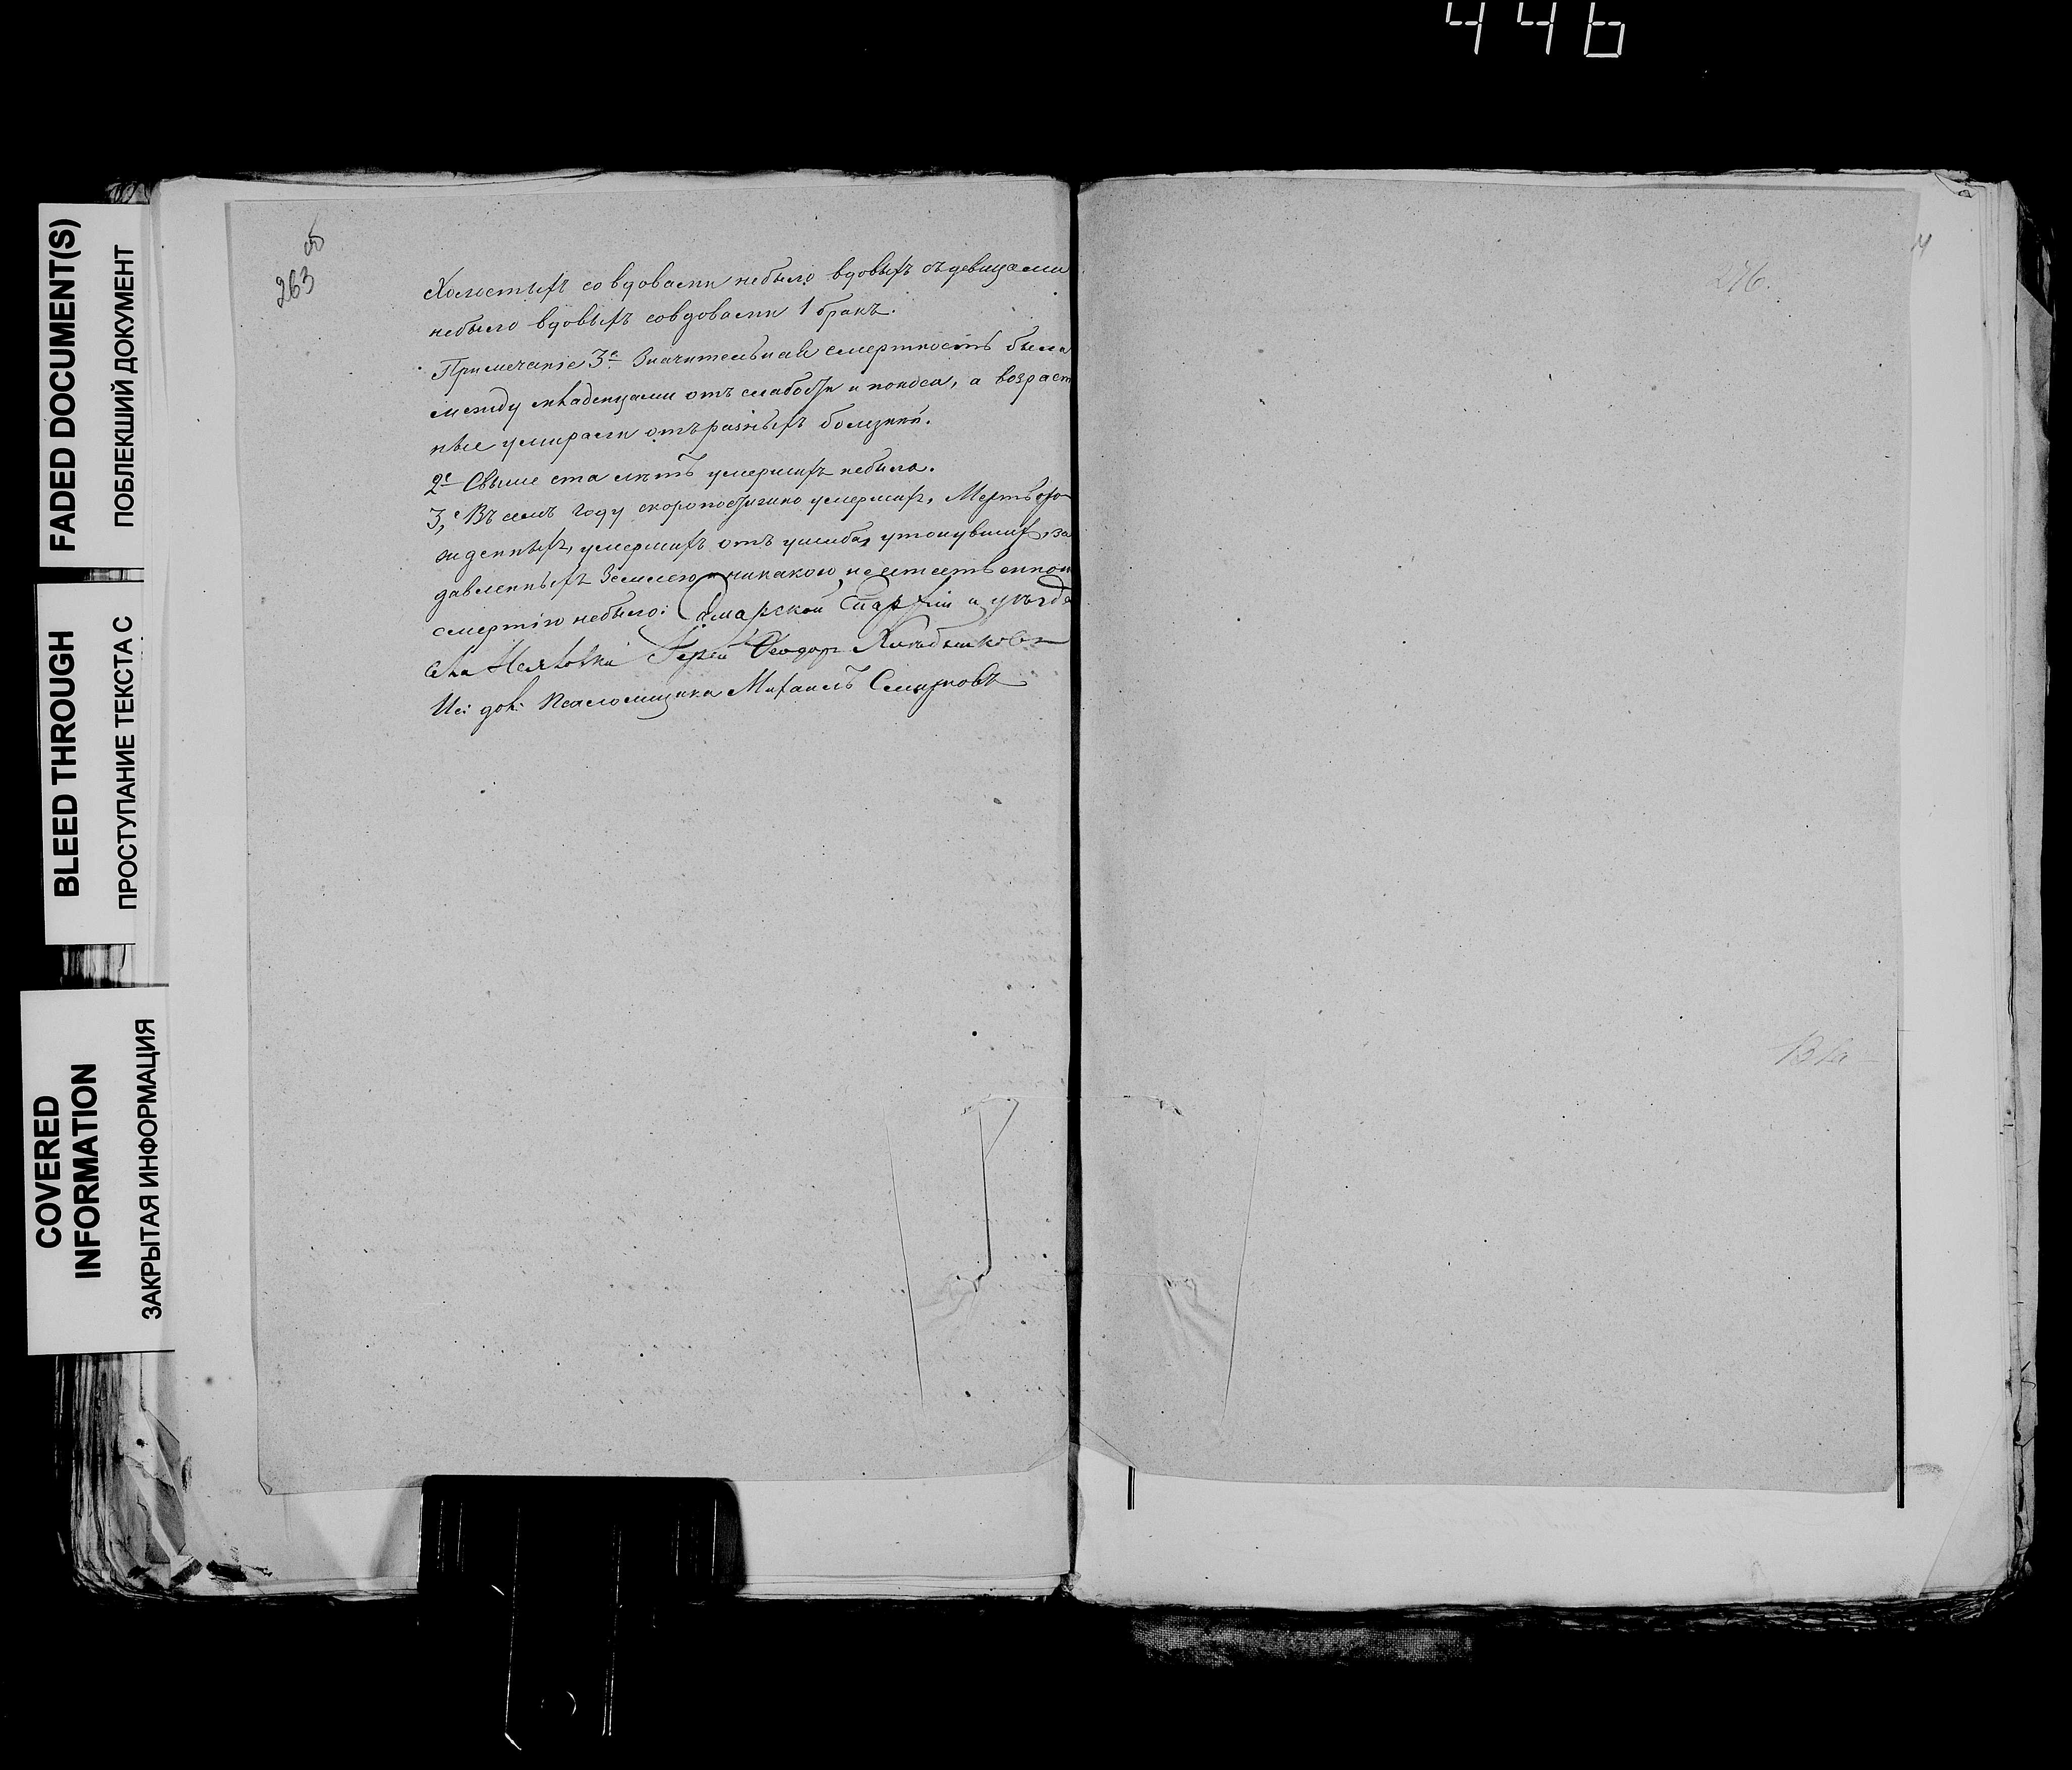 446
FADED DOCUMENT(S)
ПОБЛЕКШИЙ ДОКУМЕНТ
BLEED THROUGH
ПРОСТУПАНИЕ ТЕКСТА С
COVERED
INFORMATION
ЗАКРЫТАЯ ИНФОРМАЦИЯ
263
Холостыхъ со вдовами небыло вдовыхъ съ девицами
небыло вдовыхъ совдовами 1 бракъ.
Примечаніе 3е Значительная смертность была
между младенцами отъ слабости и поноса, а возраст
ные умирали отъ разныхъ болезней.
2е Свыше ста летъ умершихъ небыло.
3,е Въ семъ году скоропостижно умершихъ, Мертворо
жденныхъ, умершихъ отъ ушиба, утонувшихъ, за
давленныхъ Землею и никакою неестественною
смертію небыло: Самарской Епархіи и уѣзда
села Іерей Феодоръ
Ис: дол: Псаломщика Михаилъ Смирновъ
276.